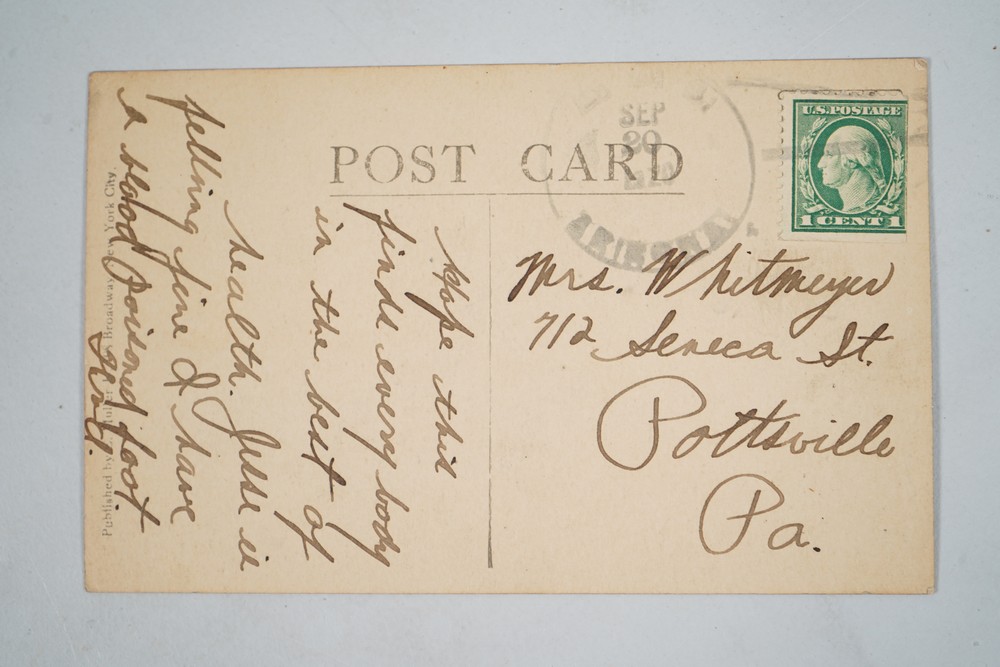 POST CARD
SEP
20
ARIZONA
U.S. POSTAGE
1 CENT 1
Mrs. Whitmeyer
712 Seneca St.
Pottsville
Pa.
Hope this
finds every body
in the best of
health. Jesse is
felling fine I have
a blood poisoned foot
Published by Broadway New York City.